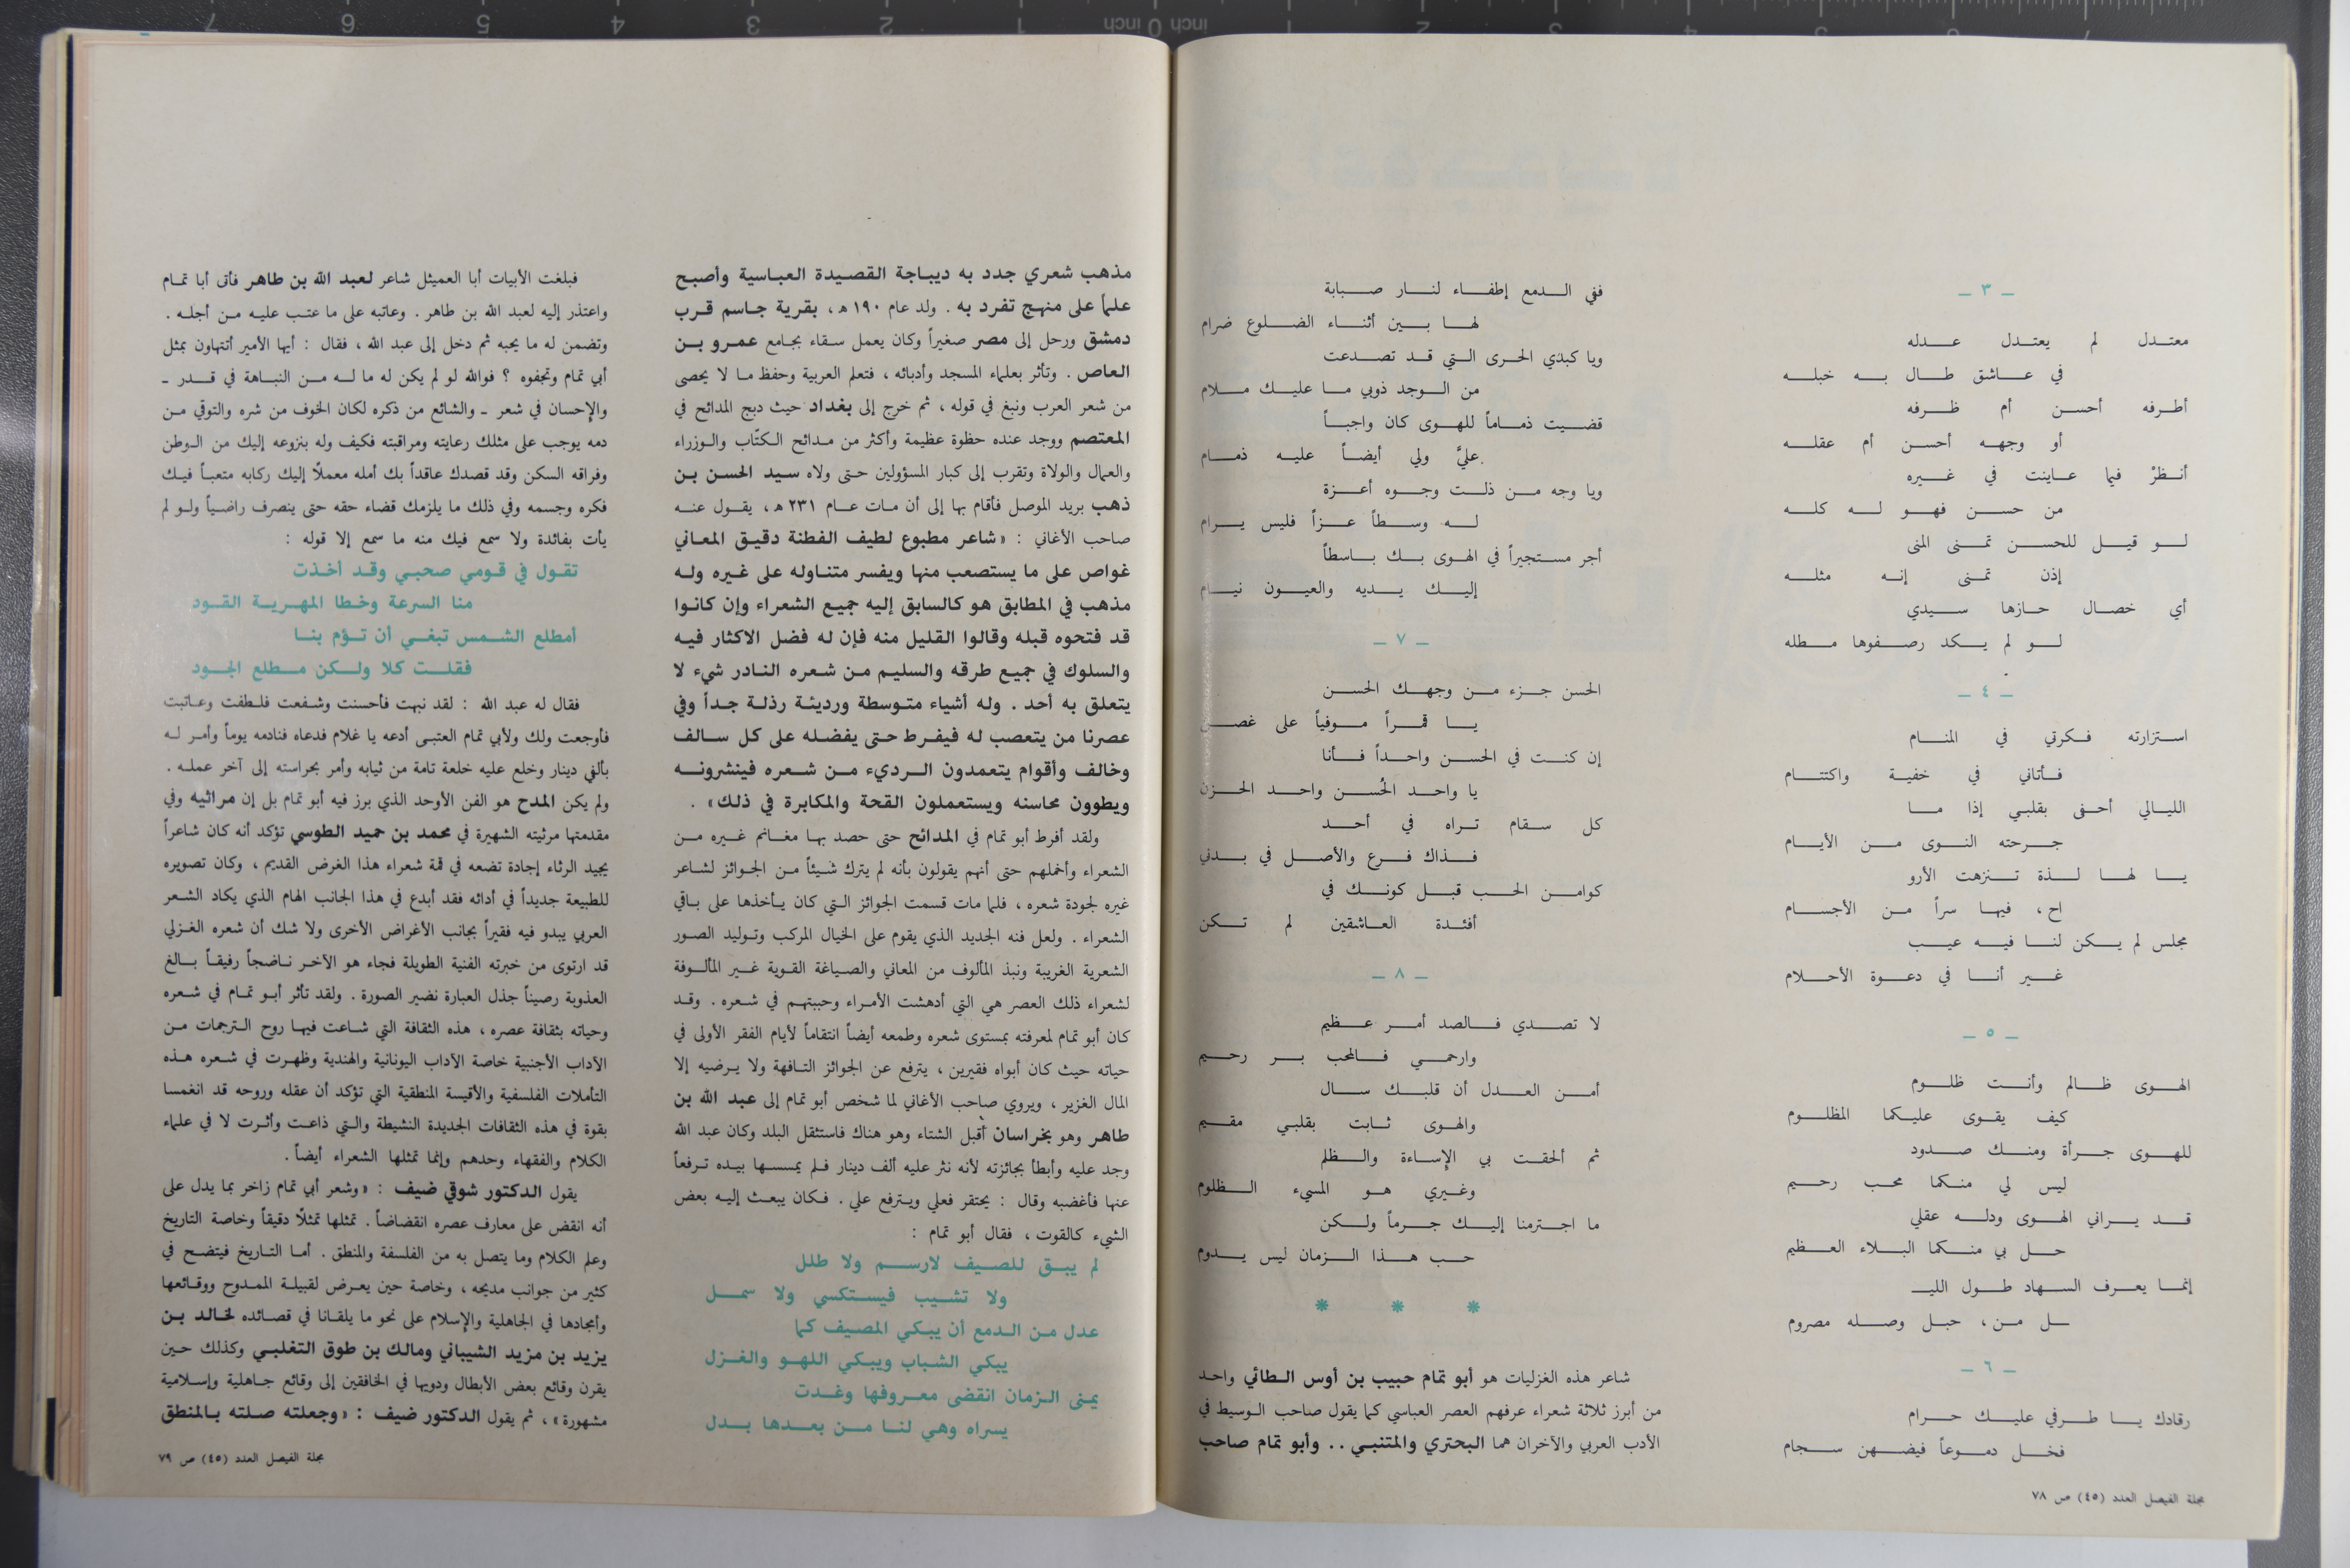 ـ ٣ ـ
معتدل لم يعتدل عدله
في عاشق طال به خبله
أطرفه أحسن أم ظرفه
أو وجهه أحسن أم عقله
أنظرْ فيما عاينت في غيره
من حسن فهو له كله
لو قيل للحسن تمنى المنى
إذن تمنى إنه مثله
أي خصال حازها سيدي
لو لم يكد رصفوها مطله
ـ ٤ ـ
استزارته فكرتي في المنام
فأتاني في خفية واكتتام
الليالي أحفى بقلبي إذا ما
جرحته النوى من الأيام
يا لها لذة تنزهت الأرو
اح ، فيها سراً من الأجسام
مجلس لم يكن لنا فيه عيب
غير أنا في دعوة الأحلام
ـ ٥ ـ
الهوى ظالم وأنت ظلوم
كيف يقوى عليكما المظلوم
للهوى جرأة ومنك صدود
ليس لي منكما محب رحيم
قد يراني الهوى ودله عقلي
حل بي منكما البلاء العظيم
إنما يعرف السهاد طول الليـ
ـل من، حبل وصله مصروم
ـ ٦ ـ
رقادك يا طرفي عليك حرام
فخل دموعاً فيضهن سجام
مجلة الفيصل العدد (٤٥) ص ٧٨
ففي الدمع إطفاء لنار صبابة
لها بين أثناء الضلوع ضرام
ويا كبدي الحرى التي قد تصدعت
من الوجد ذوبي ما عليك ملام
قضيت ذماماً للهوى كان واجباً
عليَّ ولي أيضاً عليه ذمام
ويا وجه من ذلت وجوه أعزة
له وسطاً عزاً فليس يرام
أجر مستجيراً في الهوى بك باسطاً
إليك يديه والعيون نيام
ـ ٧ ـ
الحسن جزء من وجهك الحسن
يا قمراً موفياً على غصن
إن كنت في الحسن واحداً فأنا
يا واحد الحُسن واحد الحزن
كل سقام تراه في أحد
فذاك فرع والأصل في بدني
كوامن الحب قبل كونك في
أفئدة العاشقين لم تكن
ـ ٨ ـ
لا تصدي فالصد أمر عظيم
وارحمي فالمحب بر رحيم
أمن العدل أن قلبك سال
والهوى ثابت بقلبي مقيم
ثم ألحقت بي الإساءة والظلم
وغيري هو المسيء الظلوم
ما اجترمنا إليك جرماً ولكن
حب هذا الزمان ليس يدوم
* * *
شاعر هذه الغزليات هو أبو تمام حبيب بن أوس الطائي واحد
من أبرز ثلاثة شعراء عرفهم العصر العباسي كما يقول صاحب الوسيط في
الأدب العربي والآخران هما البحتري والمتنبي .. وأبو تمام صاحب
مذهب شعري جدد به ديباجة القصيدة العباسية وأصبح
علماً على منهج تفرد به . ولد عام ١٩٠ هـ ، بقرية جاسم قرب
دمشق ورحل إلى مصر صغيراً وكان يعمل سقاء بجامع عمرو بن
العاص . وتأثر بعلماء المسجد وأدبائه ، فتعلم العربية وحفظ ما لا يحصى
من شعر العرب ونبغ في قوله ، ثم خرج إلى بغداد حيث دبج المدائح في
المعتصم ووجد عنده حظوة عظيمة وأكثر من مدائح الكتّاب والوزراء
والعمال والولاة وتقرب إلى كبار المسؤولين حتى ولاه سيد الحسن بن
ذهب بريد الموصل فأقام بها إلى أن مات عام ٢٣١ هـ ، يقول عنه
صاحب الأغاني : «شاعر مطبوع لطيف الفطنة دقيق المعاني
غواص على ما يستصعب منها ويفسر متناوله على غيره وله
مذهب في المطابق هو كالسابق إليه جميع الشعراء وإن كانوا
قد فتحوه قبله وقالوا القليل منه فإن له فضل الاكثار فيه
والسلوك في جميع طرقه والسليم من شعره النادر شيء لا
يتعلق به أحد . وله أشياء متوسطة ورديئة رذلة جداً وفي
عصرنا من يتعصب له فيفرط حتى يفضله على كل سالف
وخالف وأقوام يتعمدون الرديء من شعره فينشرونه
ويطوون محاسنه ويستعملون القحة والمكابرة في ذلك» .
ولقد أفرط أبو تمام في المدائح حتى حصد بها مغانم غيره من
الشعراء وأخملهم حتى أنهم يقولون بأنه لم يترك شيئاً من الجوائز لشاعر
غيره لجودة شعره ، فلما مات قسمت الجوائز التي كان يأخذها على باقي
الشعراء . ولعل فنه الجديد الذي يقوم على الخيال المركب وتوليد الصور
الشعرية الغريبة ونبذ المألوف من المعاني والصياغة القوية غير المألوفة
لشعراء ذلك العصر هي التي أدهشت الأمراء وحببتهم في شعره . وقد
كان أبو تمام لمعرفته بمستوى شعره وطمعه أيضاً انتقاماً لأيام الفقر الأولى في
حياته حيث كان أبواه فقيرين ، يترفع عن الجوائز التافهة ولا يرضيه إلا
المال الغزير ، ويروي صاحب الأغاني لما شخص أبو تمام إلى عبد الله بن
طاهر وهو بخراسان أقبل الشتاء وهو هناك فاستثقل البلد وكان عبد الله
وجد عليه وأبطأ بجائزته لأنه نثر عليه ألف دينار فلم يمسسها بيده ترفعاً
عنها فأغضبه وقال : يحتقر فعلي ويترفع علي . فكان يبعث إليه بعض
الشيء كالقوت ، فقال أبو تمام :
لم يبق للصيف لارسم ولا طلل
ولا تشيب فيستكسي ولا سمل
عدل من الدمع أن يبكي المصيف كما
يبكي الشباب ويبكي اللهو والغزل
يمنى الزمان انقضى معروفها وغدت
يسراه وهي لنا من بعدها بدل
فبلغت الأبيات أبا العميثل شاعر لعبد الله بن طاهر فأتى أبا تمام
واعتذر إليه لعبد الله بن طاهر . وعاتبه على ما عتب عليه من أجله .
وتضمن له ما يحبه ثم دخل إلى عبد الله ، فقال : أيها الأمير أتتهاون بمثل
أبي تمام وتجفوه ؟ فوالله لو لم يكن له ما له من النباهة في قدر ـ
والإحسان في شعر ـ والشائع من ذكره لكان الخوف من شره والتوقي من
دمه يوجب على مثلك رعايته ومراقبته فكيف وله بنزوعه إليك من الوطن
وفراقه السكن وقد قصدك عاقداً بك أمله معملاً إليك ركابه متعباً فيك
فكره وجسمه وفي ذلك ما يلزمك قضاء حقه حتى ينصرف راضياً ولو لم
يأت بفائدة ولا سمع فيك منه ما سمع إلا قوله :
تقول في قومي صحبي وقد أخذت
منا السرعة وخطا المهرية القود
أمطلع الشمس تبغي أن تؤم بنا
فقلت كلا ولكن مطلع الجود
فقال له عبد الله : لقد نبهت فأحسنت وشفعت فلطفت وعاتبت
فأوجعت ولك ولأبي تمام العتبى أدعه يا غلام فدعاه فنادمه يوماً وأمر له
بألفي دينار وخلع عليه خلعة تامة من ثيابه وأمر بحراسته إلى آخر عمله .
ولم يكن المدح هو الفن الأوحد الذي برز فيه أبو تمام بل إن مراثيه وفي
مقدمتها مرثيته الشهيرة في محمد بن حميد الطوسي تؤكد أنه كان شاعراً
يجيد الرثاء إجادة تضعه في قمة شعراء هذا الغرض القديم ، وكان تصويره
للطبيعة جديداً في أدائه فقد أبدع في هذا الجانب الهام الذي يكاد الشعر
العربي يبدو فيه فقيراً بجانب الأغراض الأخرى ولا شك أن شعره الغزلي
قد ارتوى من خبرته الفنية الطويلة فجاء هو الآخر ناضجاً رفيقاً بالغ
العذوبة رصيناً جذل العبارة نضير الصورة . ولقد تأثر أبو تمام في شعره
وحياته بثقافة عصره ، هذه الثقافة التي شاعت فيها روح الترجمات من
الآداب الأجنبية خاصة الآداب اليونانية والهندية وظهرت في شعره هذه
التأملات الفلسفية والأقيسة المنطقية التي تؤكد أن عقله وروحه قد انغمسا
بقوة في هذه الثقافات الجديدة النشيطة والتي ذاعت وأثرت لا في علماء
الكلام والفقهاء وحدهم وإنما تمثلها الشعراء أيضاً .
يقول الدكتور شوقي ضيف : «وشعر أبي تمام زاخر بما يدل على
أنه انقض على معارف عصره انقضاضاً . تمثلها تمثلاً دقيقاً وخاصة التاريخ
وعلم الكلام وما يتصل به من الفلسفة والمنطق . أما التاريخ فيتضح في
كثير من جوانب مديحه ، وخاصة حين يعرض لقبيلة الممدوح ووقائعها
وأمجادها في الجاهلية والإسلام على نحو ما يلقانا في قصائده لخالد بن
يزيد بن مزيد الشيباني ومالك بن طوق التغلبي وكذلك حين
يقرن وقائع بعض الأبطال ودويها في الخافقين إلى وقائع جاهلية وإسلامية
مشهورة» ، ثم يقول الدكتور ضيف : «وجعلته صلته بالمنطق
مجلة الفيصل العدد (٤٥) ص ٧٩
7 6 5 4 3 2 1 inch 0 inch 1 2 3 4 5 6 7